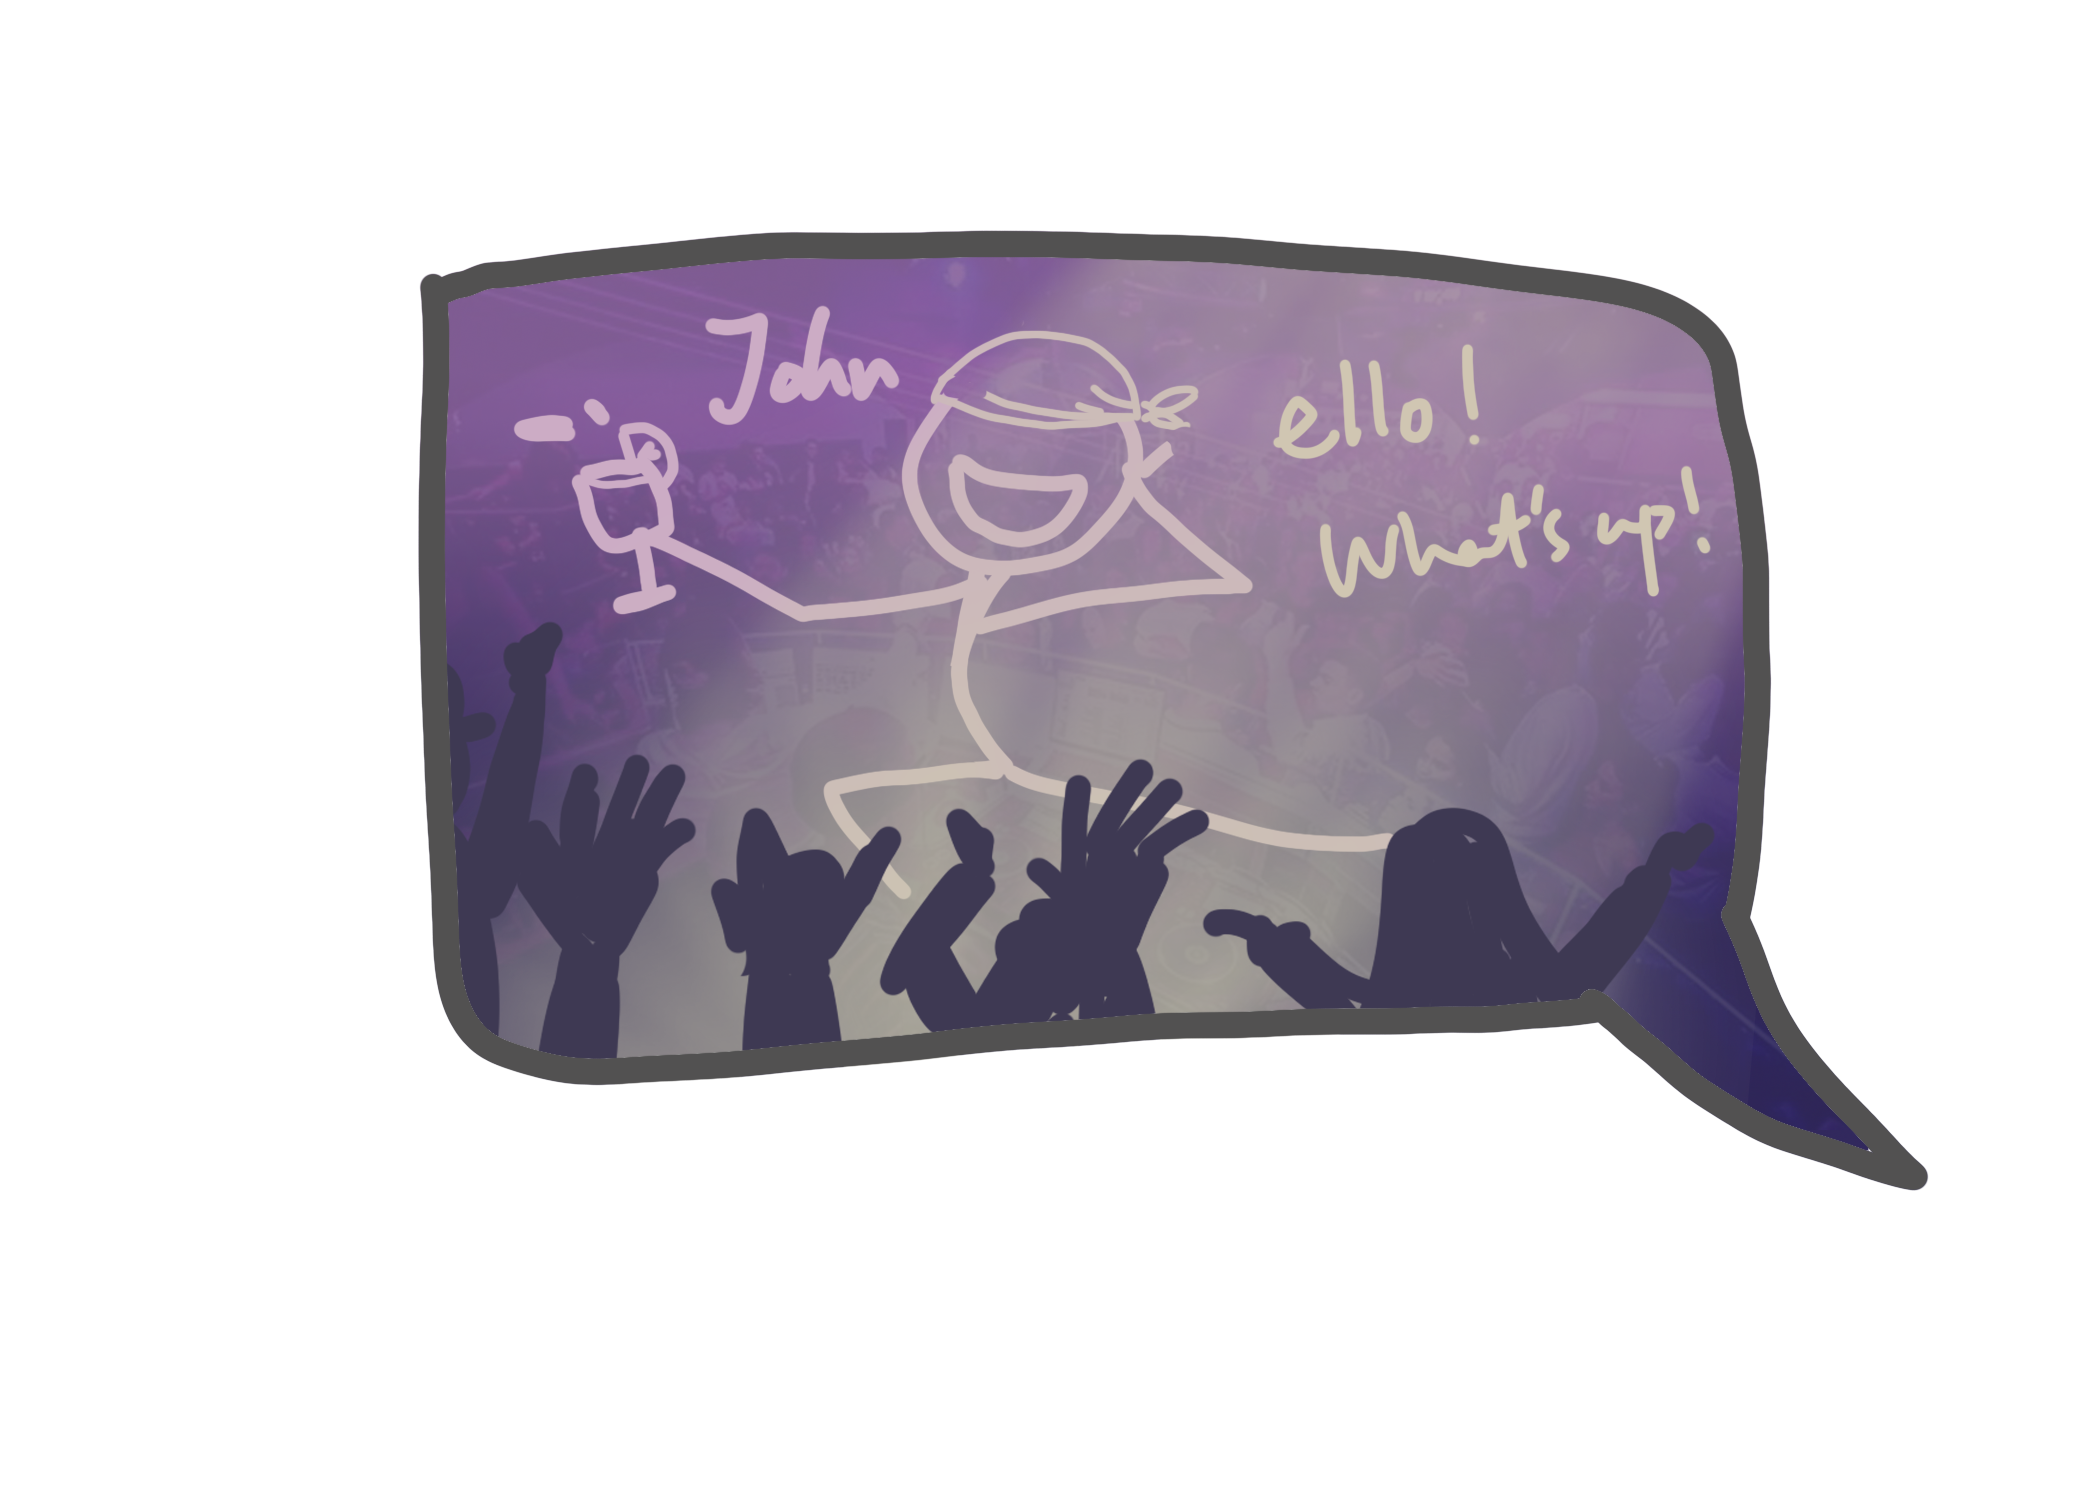 John
ello!
What's up!